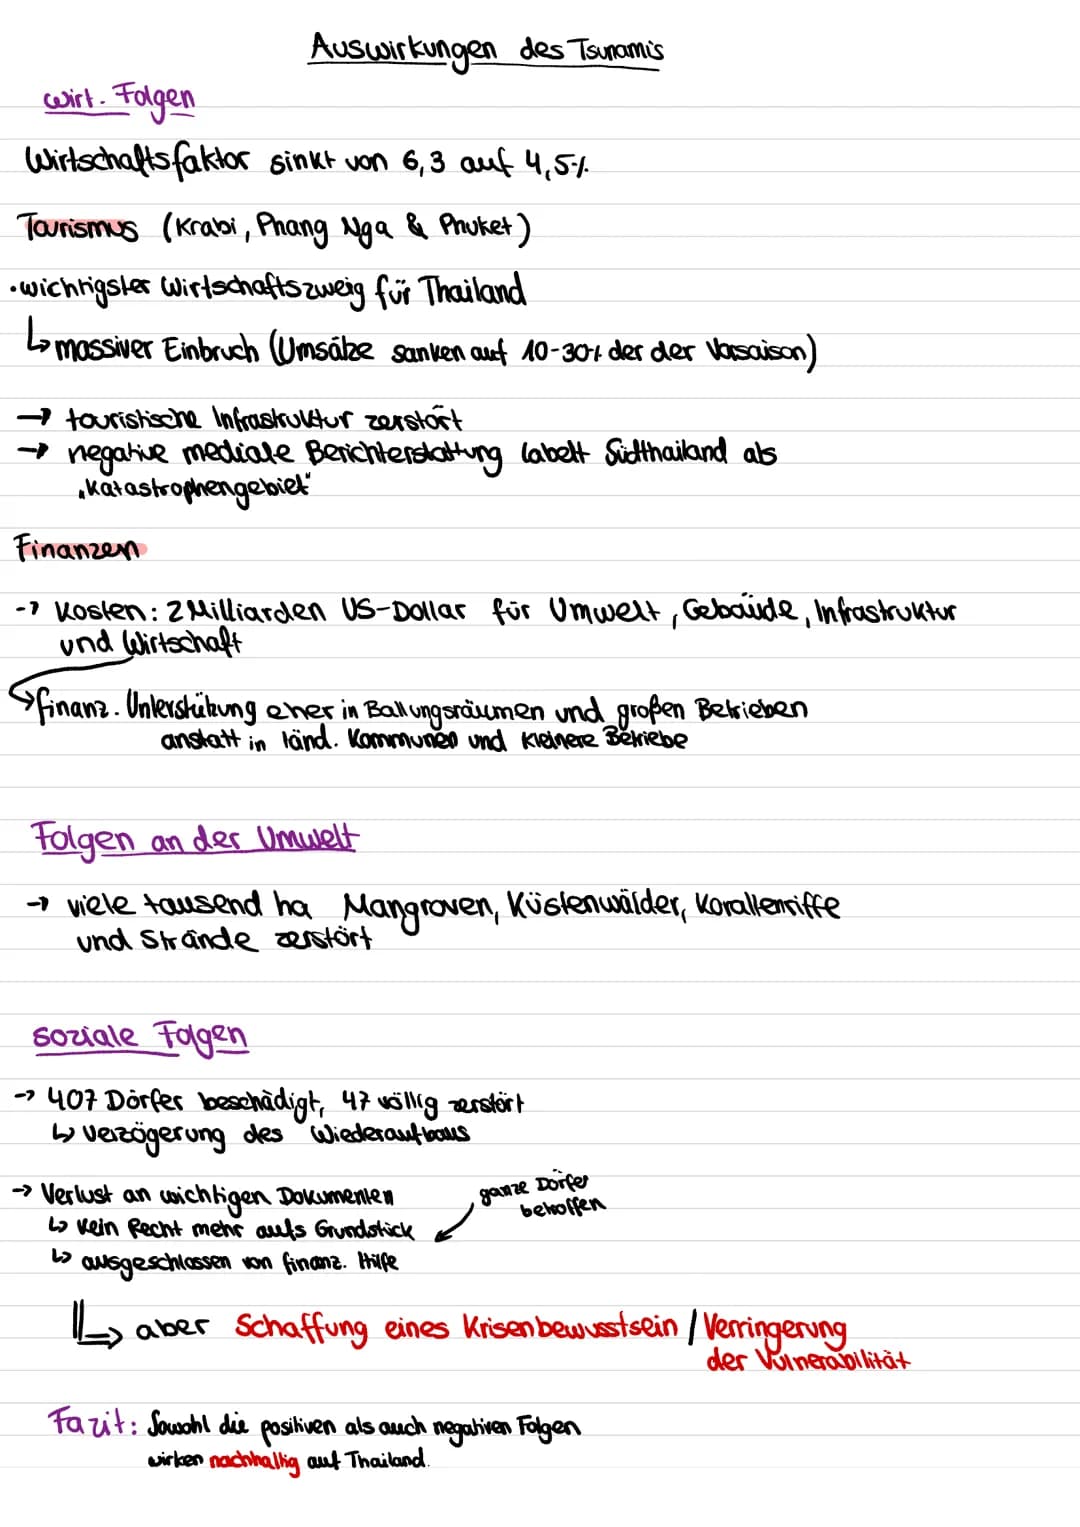 Auswirkungen des Tsunamis
wirt. Folgen
Wirtschaftsfaktor sinkt von 6,3 auf 4,5%
Tourismus (Krabi, Phang Nga & Phuket)
•wichtigster Wirtschaftszweig für Thailand
↳ massiver Einbruch (Umsätze sanken auf 10-30% der der Vorsaison)
→ touristische Infrastruktur zerstört
→ negative mediale Berichterstattung labelt Südthailand als
„Katastrophengebiet"
Finanzen
→ Kosten: 2 Milliarden US-Dollar für Umwelt, Gebäude, Infrastruktur
und Wirtschaft
↳ finanz. Unterstützung eher in Ballungsräumen und großen Betrieben
anstatt in länd. Kommunen und kleinere Betriebe
Folgen an der Umwelt
→ viele tausend ha Mangroven, Küstenwälder, Korallenriffe
und Strände zerstört
soziale Folgen
→ 407 Dörfer beschädigt, 47 völlig zerstört
↳ Verzögerung des Wiederaufbaus
→ Verlust an wichtigen Dokumenten
ganze Dörfer
betroffen
↳ kein Recht mehr aufs Grundstück
↳ ausgeschlossen von finanz. Hilfe
↳ aber Schaffung eines Krisenbewusstsein / Verringerung
der Vulnerabilität
Fazit: Sowohl die positiven als auch negativen Folgen
wirken nachhaltig auf Thailand.